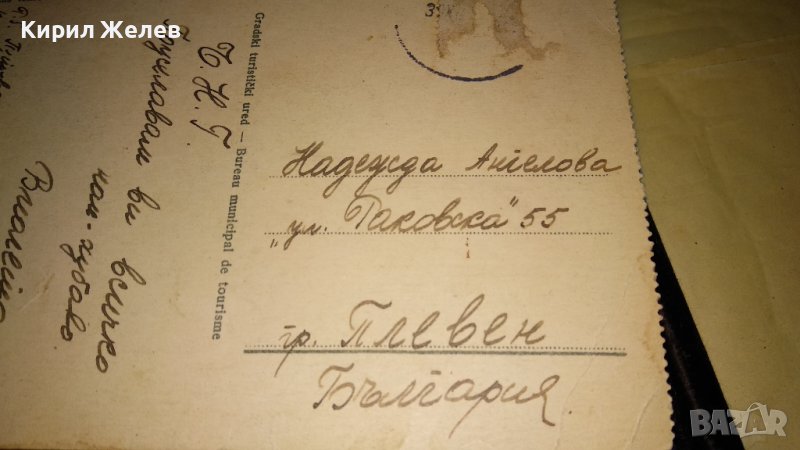 Кирил Желев
Ч. Н. Г
ви всичко
най-хубаво
Gradski turistički ured — Bureau municipal de tourisme
Надежда Ангелова
"ул. Раковска" 55
гр. Плевен
България
BAZAR